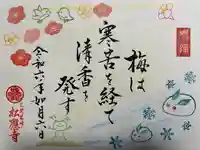 梅は
寒苦を経て
清香を
発す
令和六年如月六日
松應寺